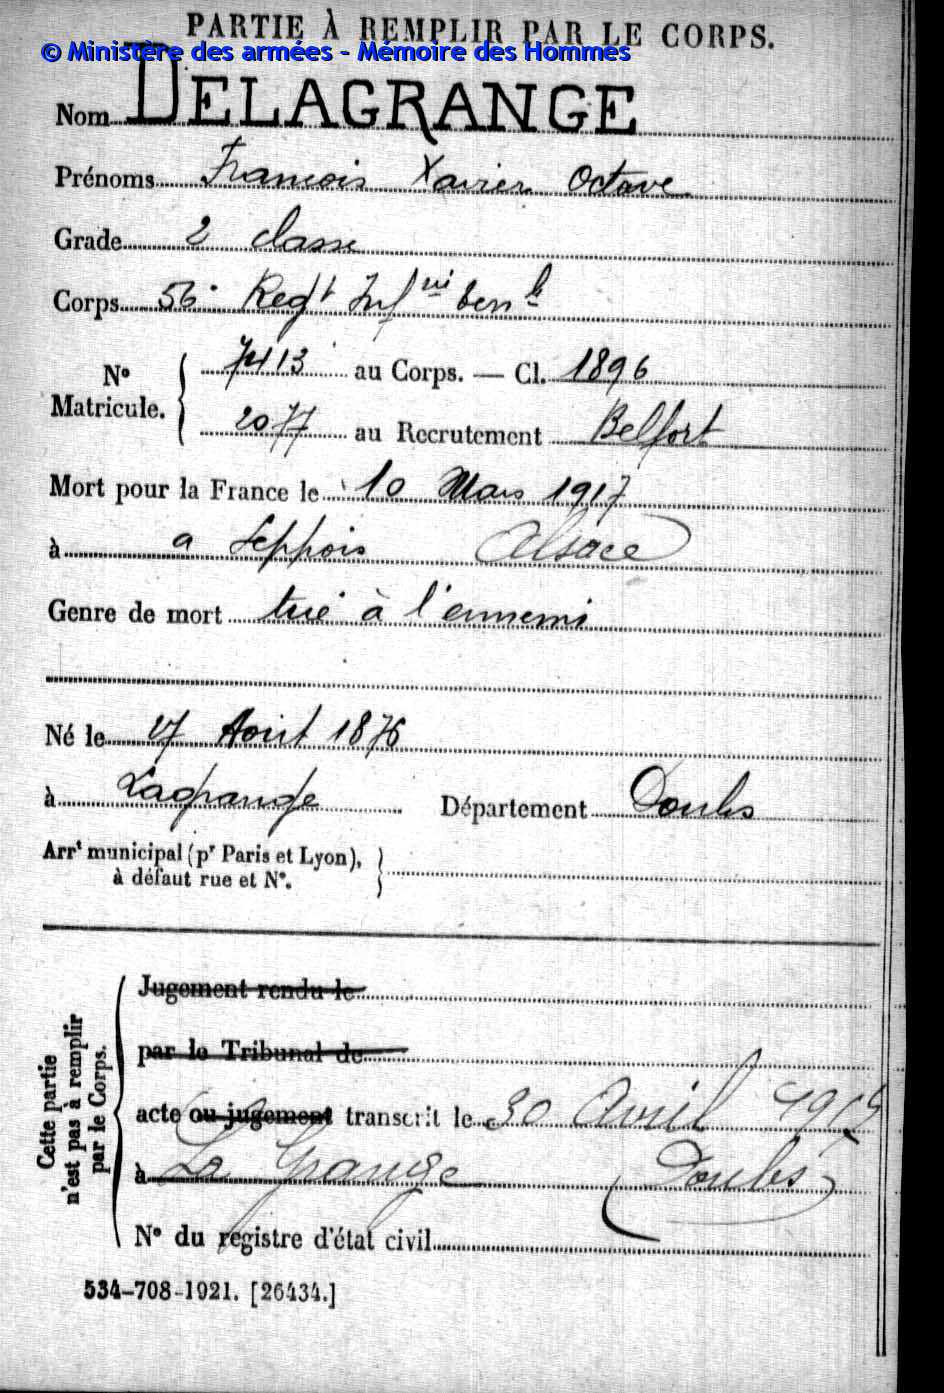 PARTIE À REMPLIR PAR LE CORPS.
© Ministère des armées - Mémoire des Hommes
Nom DELAGRANGE
Prénoms François Xavier Octave
Grade 2 classe
Corps 56 Regt Infrie terrle
N° Matricule. 7413 au Corps. — Cl. 1896
2077 au Recrutement Belfort
Mort pour la France le 10 Mars 1917
à a Seppois Alsace
Genre de mort tué à l'ennemi
Né le 17 Août 1876
à Lagrange Département Doubs
Arrt municipal (pr Paris et Lyon),
à défaut rue et N°.
Cette partie n'est pas à remplir par le Corps.
Jugement rendu le
par le Tribunal de
acte ou jugement transcrit le 30 Avril
à La Grange (Doubs)
N° du registre d'état civil
534-708-1921. [26434.]